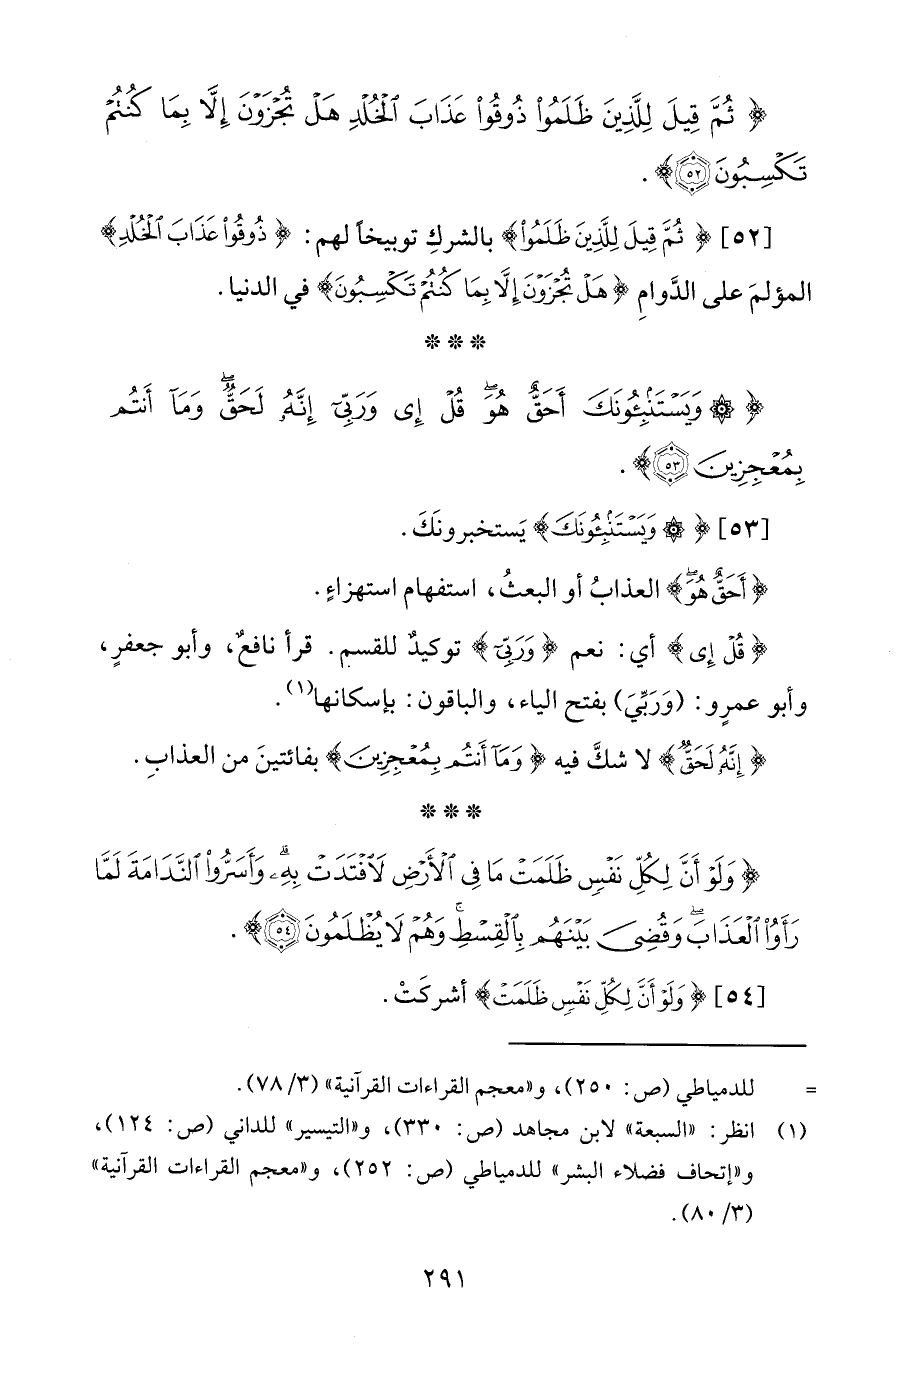 ﴿ ثُمَّ قِيلَ لِلَّذِينَ ظَلَمُوا۟ ذُوقُوا۟ عَذَابَ ٱلْخُلْدِ هَلْ تُجْزَوْنَ إِلَّا بِمَا كُنتُمْ
تَكْسِبُونَ ۝٥٢﴾ .
[٥٢] ﴿ ثُمَّ قِيلَ لِلَّذِينَ ظَلَمُوا۟﴾ بالشركِ توبيخاً لهم: ﴿ ذُوقُوا۟ عَذَابَ ٱلْخُلْدِ﴾
المؤلمَ على الدَّوامِ ﴿ هَلْ تُجْزَوْنَ إِلَّا بِمَا كُنتُمْ تَكْسِبُونَ﴾ في الدنيا.
* * *
﴿ ۞ وَيَسْتَنۢبِـُٔونَكَ أَحَقٌّ هُوَ ۖ قُلْ إِى وَرَبِّىٓ إِنَّهُۥ لَحَقٌّ ۖ وَمَآ أَنتُم
بِمُعْجِزِينَ ۝٥٣﴾ .
[٥٣] ﴿ ۞ وَيَسْتَنۢبِـُٔونَكَ﴾ يَستخبرونَكَ.
﴿ أَحَقٌّ هُوَ ۖ﴾ العذابُ أو البعثُ، استفهام استهزاءٍ.
﴿ قُلْ إِى﴾ أي: نعم ﴿ وَرَبِّىٓ﴾ توكيدٌ للقسم. قرأ نافعٌ، وأبو جعفرٍ،
وأبو عمرٍو: (وَرَبِّيَ) بفتح الياء، والباقون: بإسكانها(١).
﴿ إِنَّهُۥ لَحَقٌّ﴾ لا شكَّ فيه ﴿ وَمَآ أَنتُم بِمُعْجِزِينَ﴾ بفائتينَ من العذابِ.
* * *
﴿ وَلَوْ أَنَّ لِكُلِّ نَفْسٍ ظَلَمَتْ مَا فِى ٱلْأَرْضِ لَٱفْتَدَتْ بِهِۦ ۗ وَأَسَرُّوا۟ ٱلنَّدَامَةَ لَمَّا
رَأَوُا۟ ٱلْعَذَابَ ۖ وَقُضِىَ بَيْنَهُم بِٱلْقِسْطِ ۚ وَهُمْ لَا يُظْلَمُونَ ۝٥٤﴾ .
[٥٤] ﴿ وَلَوْ أَنَّ لِكُلِّ نَفْسٍ ظَلَمَتْ﴾ أشركَتْ.
= للدمياطي (ص: ٢٥٠)، و«معجم القراءات القرآنية» (٣/ ٧٨).
(١) انظر: «السبعة» لابن مجاهد (ص: ٣٣٠)، و«التيسير» للداني (ص: ١٢٤)،
و«إتحاف فضلاء البشر» للدمياطي (ص: ٢٥٢)، و«معجم القراءات القرآنية»
(٣/ ٨٠).
٢٩١